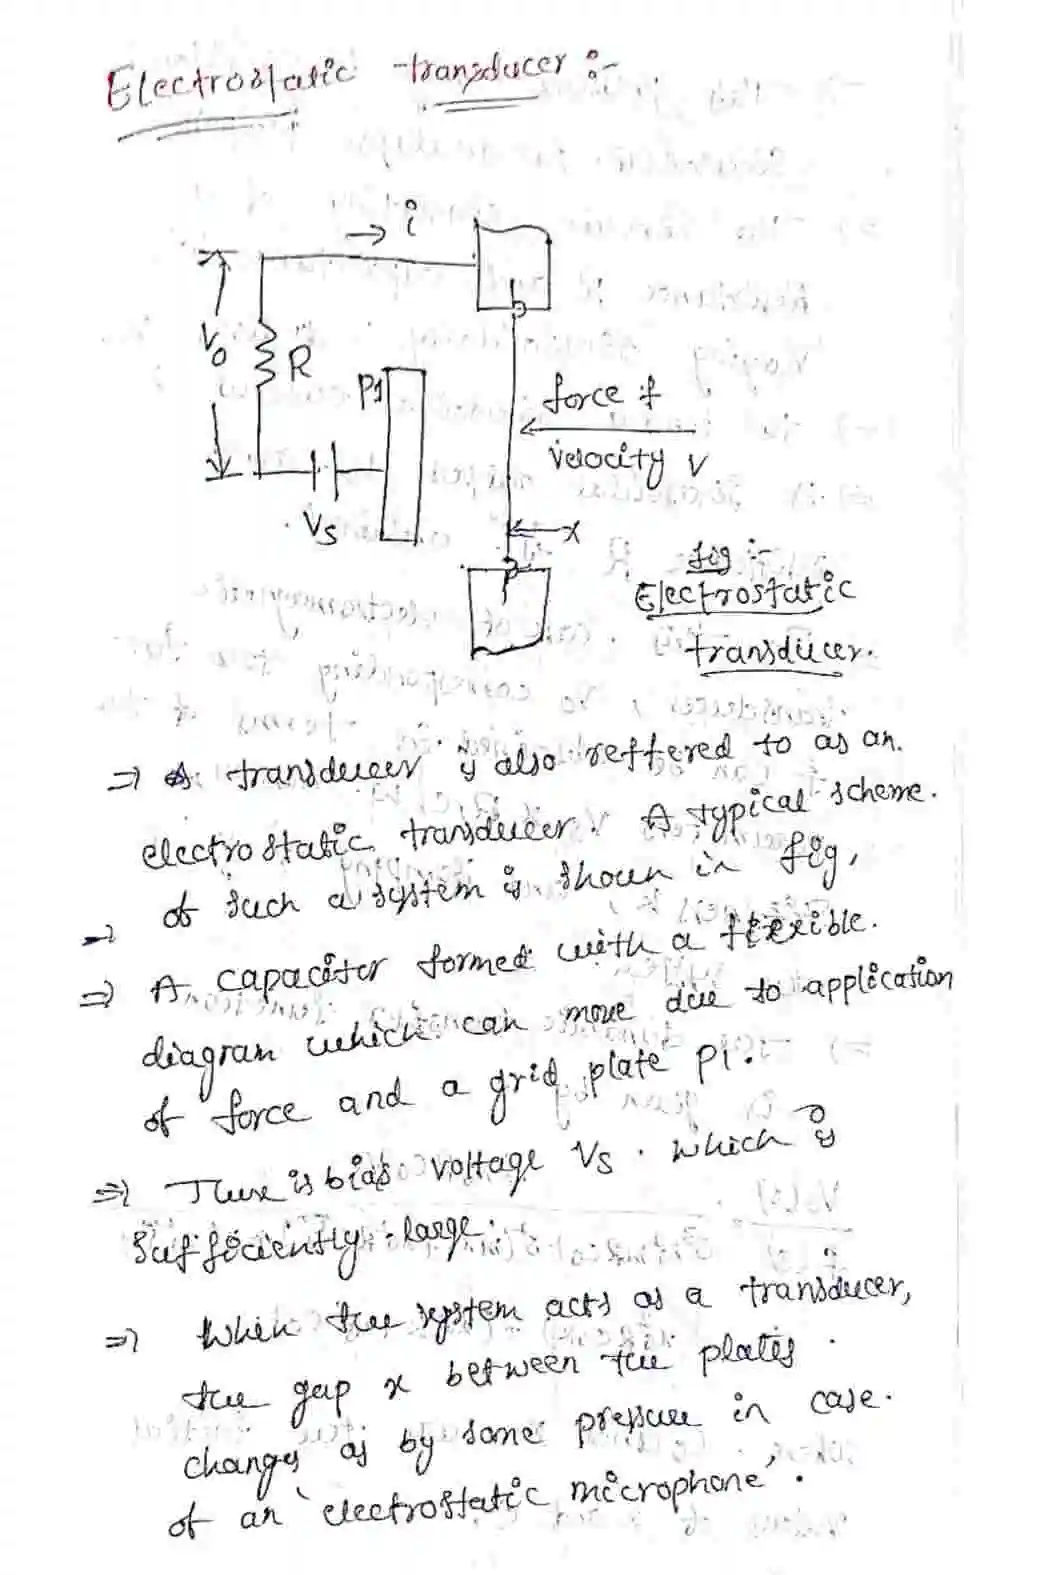 Electrostatic transducer :-
i
V0
R
P1
force f
velocity v
Vs
x
fig :-
Electrostatic
transducer.
=> A transducer is also reffered to as an.
electrostatic transducer. A typical scheme.
of such a system is shown in fig,
=> A capacitor formed with a flexible.
diagram which can move due to application
of force and a grid plate p1.
=> There is bias voltage Vs . which is
sufficiently large.
=> When the system acts as a transducer,
the gap x between the plates
changes as by some pressure in case.
of an 'electrostatic microphone'.